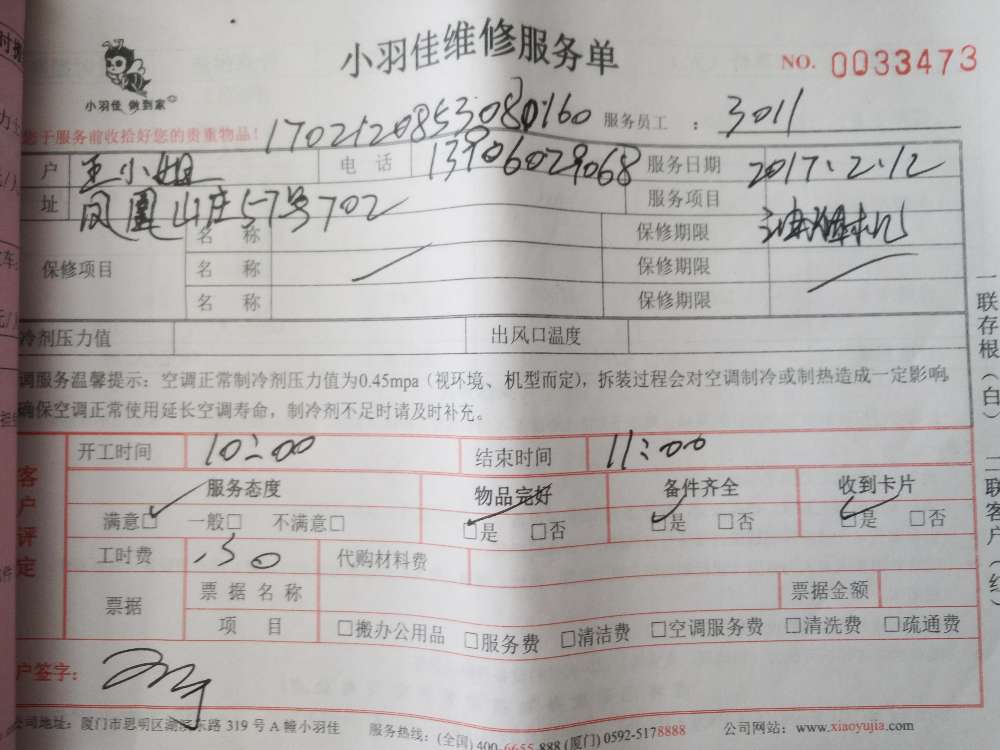 小羽佳维修服务单
NO. 0033473
小羽佳 做到家
于服务前收拾好您的贵重物品! 1702120853080160 服务员工 : 3011
户 王小姐 电话 13906029068 服务日期 2017.2.12
址 凤凰山庄57号702 服务项目
保修项目 名称 保修期限 油烟机
名称 保修期限
名称 保修期限
冷剂压力值 出风口温度
调服务温馨提示：空调正常制冷剂压力值为0.45mpa（视环境、机型而定），拆装过程会对空调制冷或制热造成一定影响，
确保空调正常使用延长空调寿命，制冷剂不足时请及时补充。
客户评定
开工时间 10:00 结束时间 11:00
服务态度 物品完好 备件齐全 收到卡片
满意□ 一般□ 不满意□ □是 □否 □是 □否 □是 □否
工时费 130 代购材料费
票据 票据名称 票据金额
项目 □搬办公用品 □服务费 □清洁费 □空调服务费 □清洗费 □疏通费
户签字:
公司地址：厦门市思明区湖滨东路 319 号 A 幢小羽佳 服务热线：(全国) 400-6655-888 (厦门) 0592-5178888 公司网站：www.xiaoyujia.com
一联存根（白） 二联客户（红）